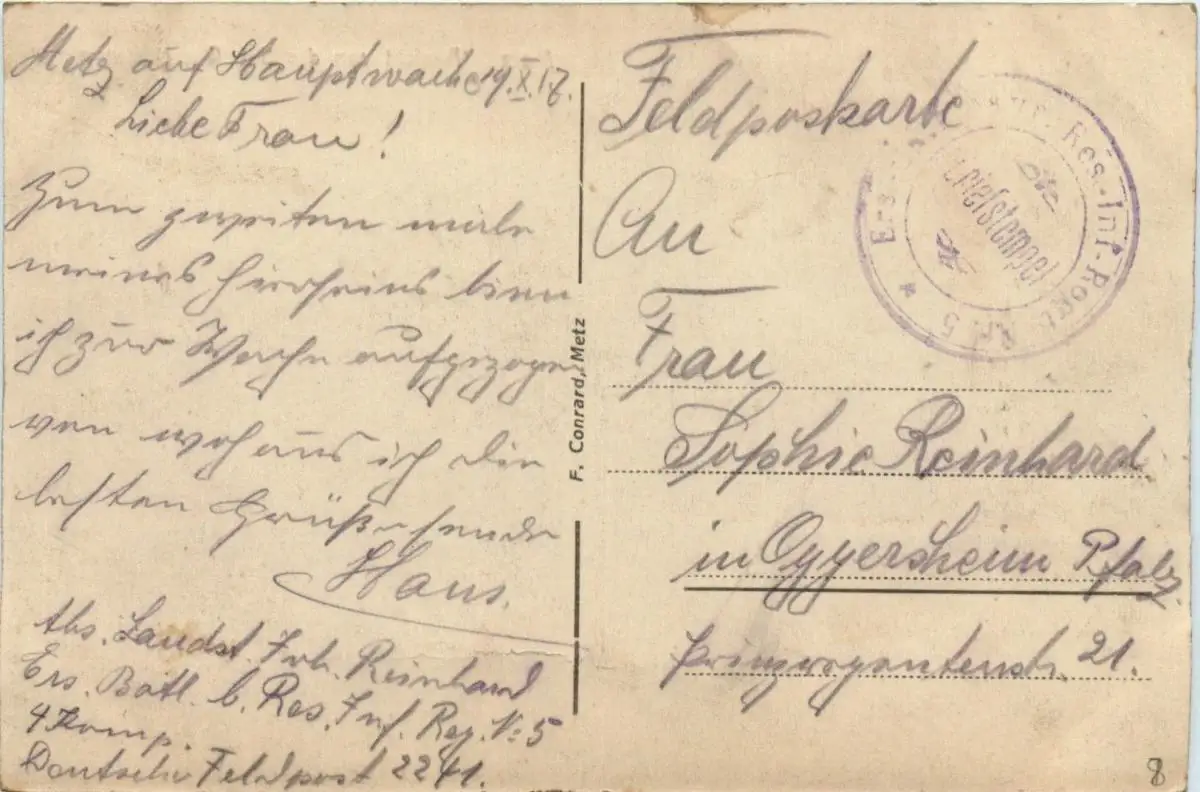 Metz auf Hauptwache 19.X.17.
Liebe Frau!
Zum zweiten male
meines hierseins bien
ich zur Wache aufgezogen
von woh aus ich die
besten Grüße sende
Hans.
Abs. Landst. Joh. Reinhard
Ers. Batl. b. Res. Inf. Reg. No 5
4 Komp.
Deutsche Feldpost 2241.
F. Conrard, Metz
Feldpostkarte
An
Frau
Sophie Reinhard
in Oggersheim Pfalz
Prinzregentenstr. 21.
Res.-Inf.-Regt. Nr. 5
Briefstempel
8